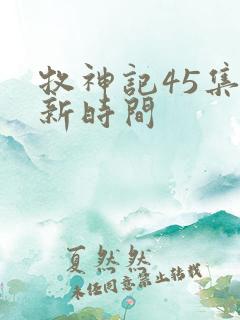 牧神記45集
新時間
夏然然
未任同意禁止转载